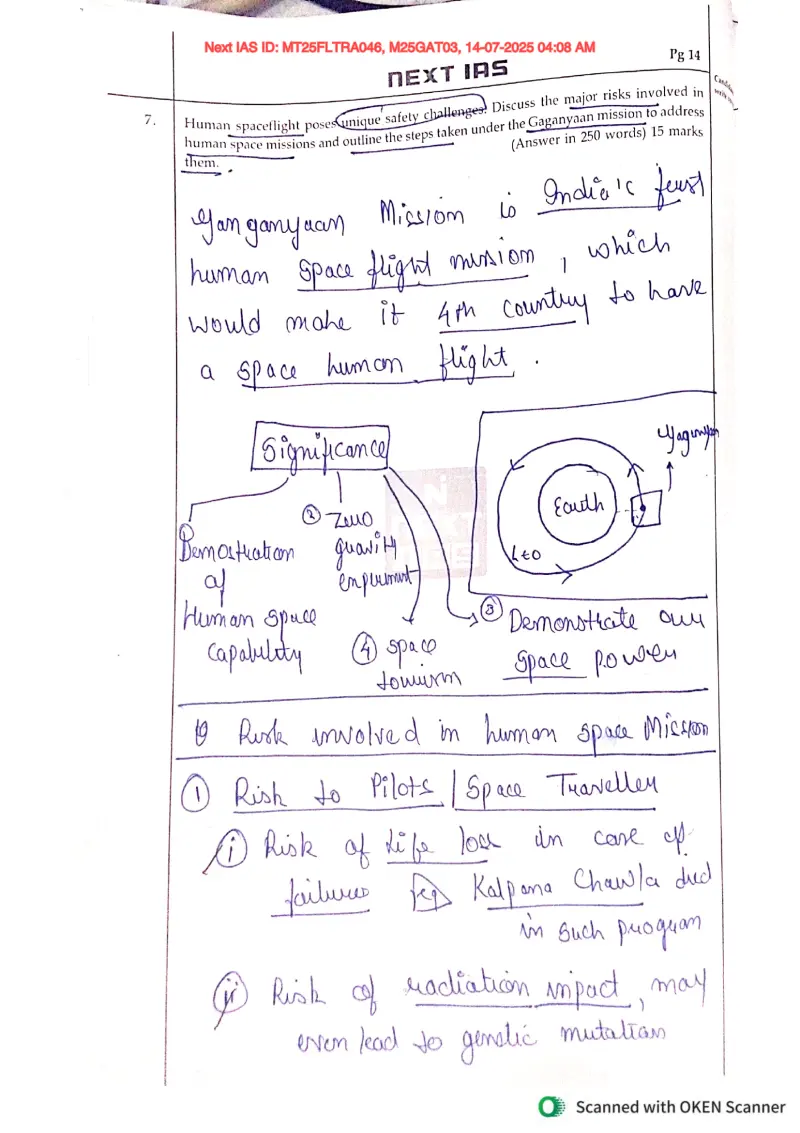 Next IAS ID: MT25FLTRA046, M25GAT03, 14-07-2025 04:08 AM
Pg 14
NEXT IAS
7. Human spaceflight poses unique safety challenges. Discuss the major risks involved in
human space missions and outline the steps taken under the Gaganyaan mission to address
them.
(Answer in 250 words) 15 marks
Ganganyaan Mission is India's first
human space flight mission, which
would make it 4th country to have
a space human flight.
Significance
① Demostration
of
Human space
capability
② Zero
gravity
experiment
④ space
tourism
③ Demonstrate our
space power
Earth
LEO
Gaganyan
Risk involved in human space Mission
① Risk to Pilots / Space Traveller
(i) Risk of Life loss in case of
failures eg Kalpana Chawla died
in such program
(ii) Risk of radiation impact, may
even lead to genetic mutation
Scanned with OKEN Scanner